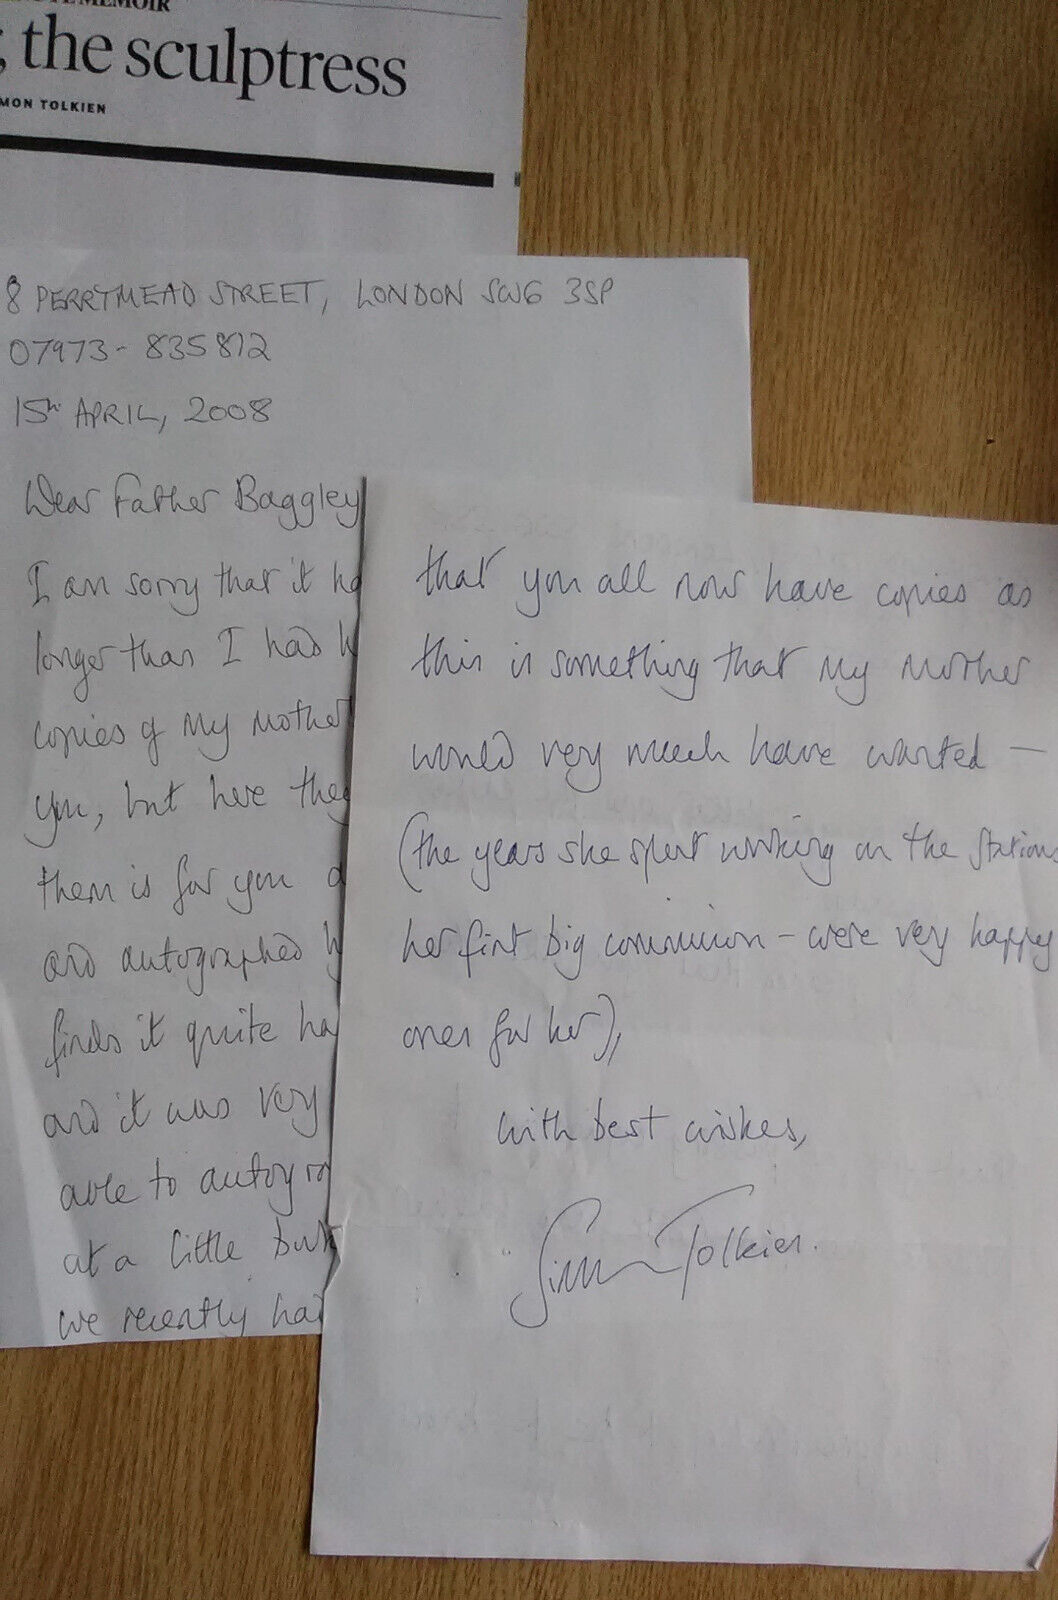 MEMOIR
; the sculptress
MON TOLKIEN
8 PERRYMEAD STREET, LONDON SW6 3SP
07973-835812
15th APRIL, 2008
Dear Father Baggley
I am sorry that it ha
longer than I had h
copies of my mother
you, but here they
them is for you a
and autographed by
finds it quite ha
and it was very
able to autogra
at a little
we recently had
that you all now have copies as
this is something that my mother
would very much have wanted —
(the years she spent working on the stations
her first big commission - were very happy
ones for her),
with best wishes,
Simon Tolkien.